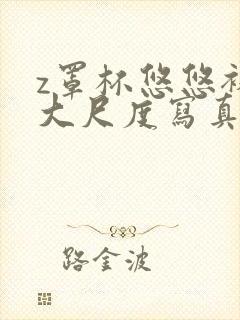 z罩杯悠悠
大尺度寫真
路金波